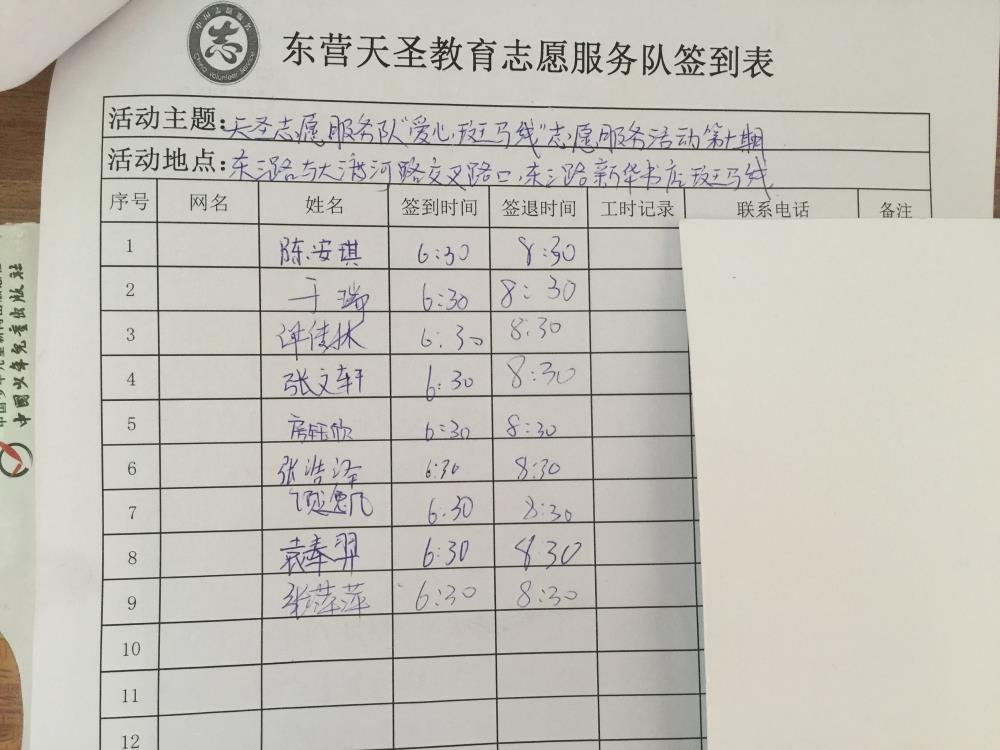 中国志愿服务
志
China Volunteer Service
东营天圣教育志愿服务队签到表
活动主题:天圣志愿服务队“爱心斑马线”志愿服务活动第十期
活动地点:东三路与大渡河路交叉路口,东三路新华书店斑马线
序号 网名 姓名 签到时间 签退时间 工时记录 联系电话 备注
1 陈安琪 6:30 8:30
2 于瑞 6:30 8:30
3 谭佳林 6:30 8:30
4 张文轩 6:30 8:30
5 房钰欣 6:30 8:30
6 张浩泽 6:30 8:30
7 6:30 8:30
8 袁奉羿 6:30 8:30
9 张萍萍 6:30 8:30
10
11
12
中国少年儿童出版社